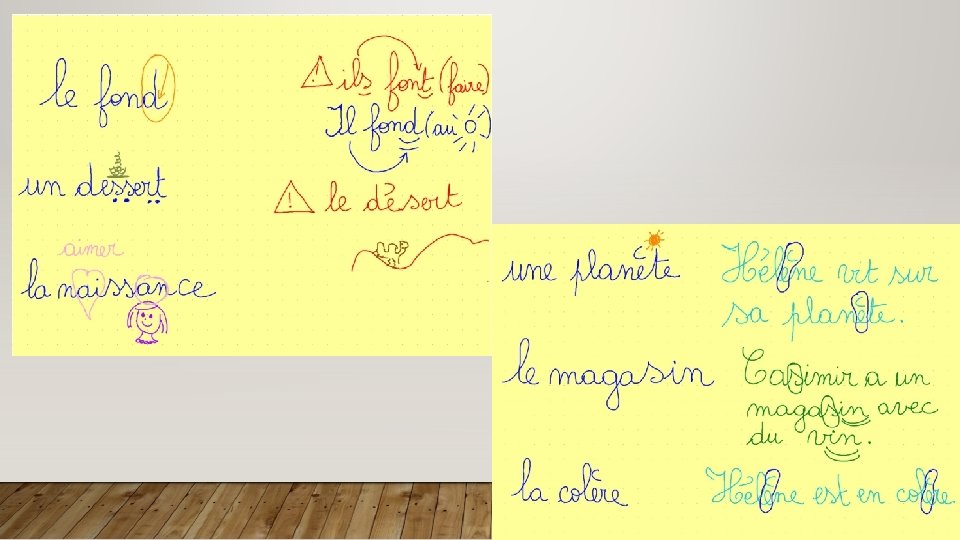 le fond
⚠ ils font (faire)
Il fond (au
un dessert
⚠ le désert
aimer
la naissance
une planète
Hélène vit sur
sa planète.
le magasin
Casimir a un
magasin avec
du vin.
la colère
Hélène est en colère.